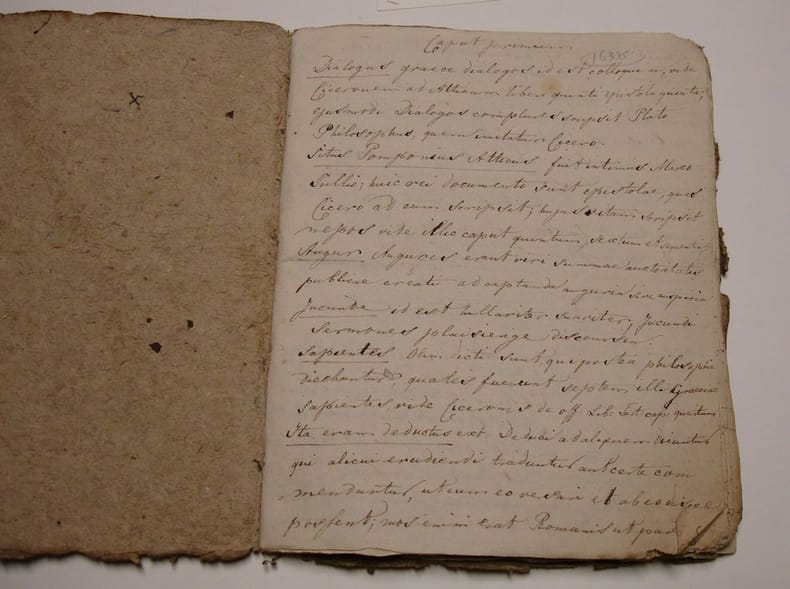 Caput primum
6335
Dialogus graece dialogos id est colloquium, vide
Ciceronem ad Atticum liber quinti epistola quinta;
ejusmodi Dialogos complures scripsit Plato
Philosophus, quem imitatur Cicero.
Titus Pomponius Atticus fuit intimus Marco
Tullio; huic rei documento sunt epistolae, quas
Cicero ad eum scripsit; hujus vitam scripsit
nepos vide illic caput quintum, sextum et
Augur Augures erant viri summae auctoritatis
publice creati ad captanda auguria sive auspicia
Jucunde id est hillariter suaviter; Jucundi
Sermones plaisierige discoursen.
Sapientes Olim dicti sunt, qui postea philosophi
dicebantur, quales fuerunt septem illi Graeciae
sapientes, vide Ciceronis de off. Lib. cap. quartum
Ita eram deductus ext. Deduci ad aliquem dicuntur
qui alicui erudiendi traduntur aut certe com
mendantur, ut cum eo versari et ab eo
possent; mos enim erat Romanis ut